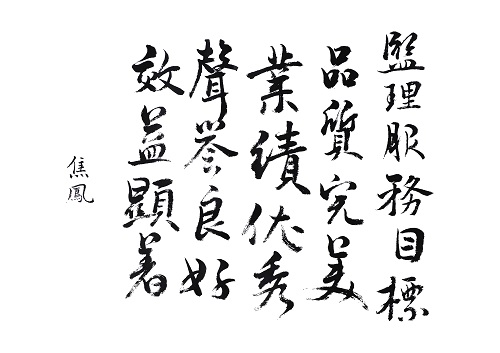 監理服務目標
品質完美
業績优秀
聲誉良好
效益顯著
焦鳳